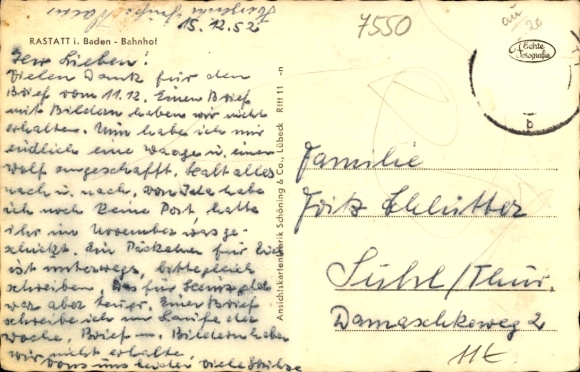 15.12.52
RASTATT i. Baden - Bahnhof
Ihr Lieben!
Vielen Dank für den
Brief vom 11.12. Einen Brief
mit Bildern haben wir nicht
erhalten. Nun habe ich mir
endlich eine Waage u. einen
Wolf angeschafft. Halt alles
nach u. nach. Von Ida habe
ich noch keine Post, hatte
ihr im November was ge-
schickt. Ein Päckchen für Euch
ist unterwegs, bitte gleich
schreiben. Das für
war aber teuer. Einen Brief
schreibe ich im Laufe der
Woche. Brief m. Bildern haben
wir nicht erhalten.
von uns beiden viele Grüße
Ansichtskartenfabrik Schöning & Co., Lübeck Rtt 11 -n
7550
Echte
Fotografie
b
Familie
Fritz Schlütter
Suhl/Thür.
Damaschkeweg 2
11t